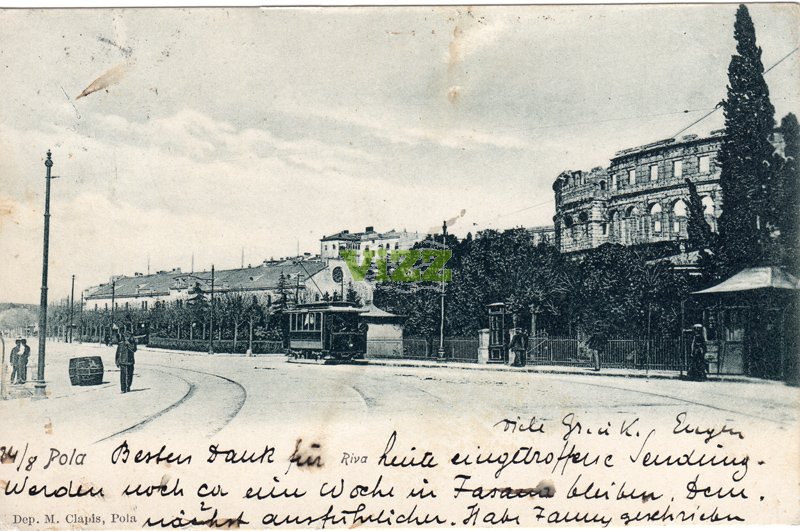 vizz
viele Grüße K. Eugen
24/8 Pola Besten Dank für Riva heute eingetroffene Sendung.
Werden noch ca ein Woche in Fasana bleiben. Dem-
Dep. M. Clapis, Pola nächst ausführlicher. Habe Fanny geschrieben